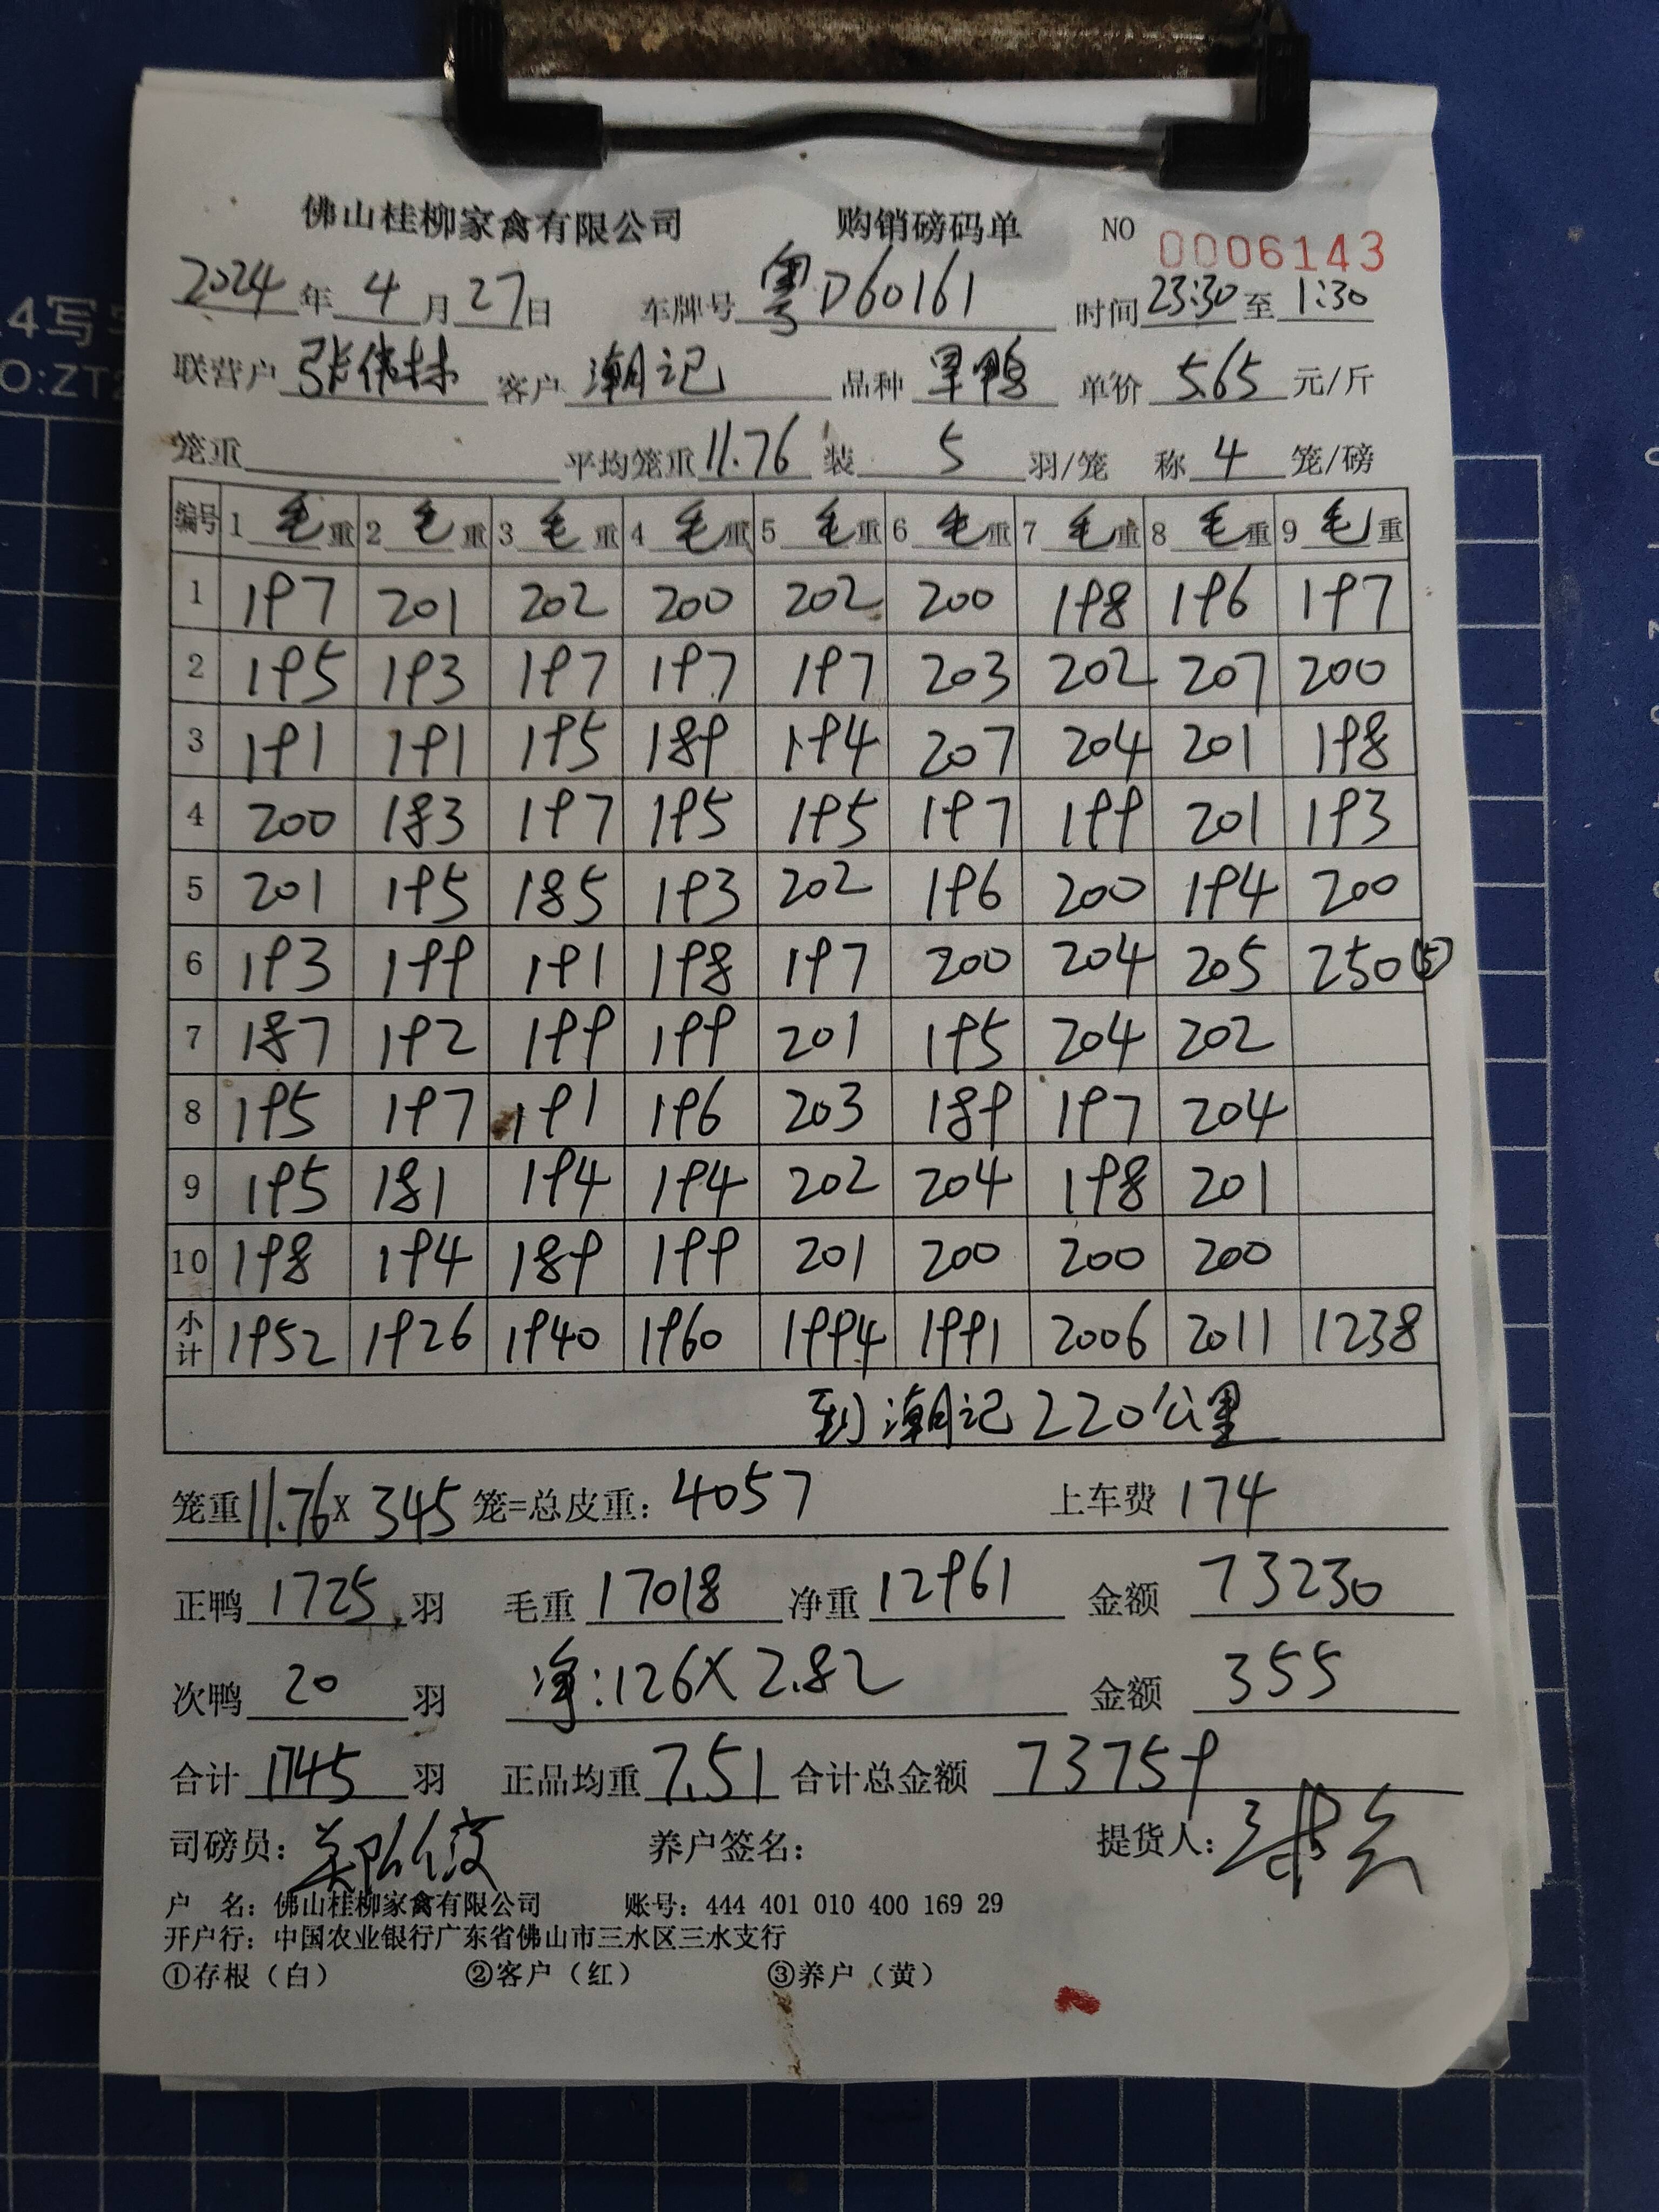 佛山桂柳家禽有限公司 购销磅码单 NO 0006143
2024年4月27日 车牌号 粤D60161 时间23:30至1:30
联营户 张伟林 客户 潮记 品种 旱鸭 单价 5.65 元/斤
笼重 平均笼重11.76 装 5 羽/笼 称 4 笼/磅
编号 1毛重 2毛重 3毛重 4毛重 5毛重 6毛重 7毛重 8毛重 9毛重
1 197 201 202 200 202 200 198 196 197
2 195 193 197 197 197 203 202 207 200
3 191 191 195 189 194 207 204 201 198
4 200 183 197 195 195 197 199 201 193
5 201 195 185 193 202 196 200 194 200
6 193 199 191 198 197 200 204 205 250⑤
7 187 192 199 199 201 195 204 202
8 195 197 191 196 203 189 197 204
9 195 181 194 194 202 204 198 201
10 198 194 189 199 201 200 200 200
小计 1952 1926 1940 1960 1994 1991 2006 2011 1238
到潮记220公里
笼重11.76X 345 笼=总皮重: 4057 上车费 174
正鸭 1725 羽 毛重 17018 净重 12961 金额 73230
次鸭 20 羽 净:126X2.82 金额 355
合计 1745 羽 正品均重 7.51 合计总金额 73759
司磅员: 养户签名: 提货人:
户 名: 佛山桂柳家禽有限公司 账号: 444 401 010 400 169 29
开户行: 中国农业银行广东省佛山市三水区三水支行
①存根(白) ②客户(红) ③养户(黄)